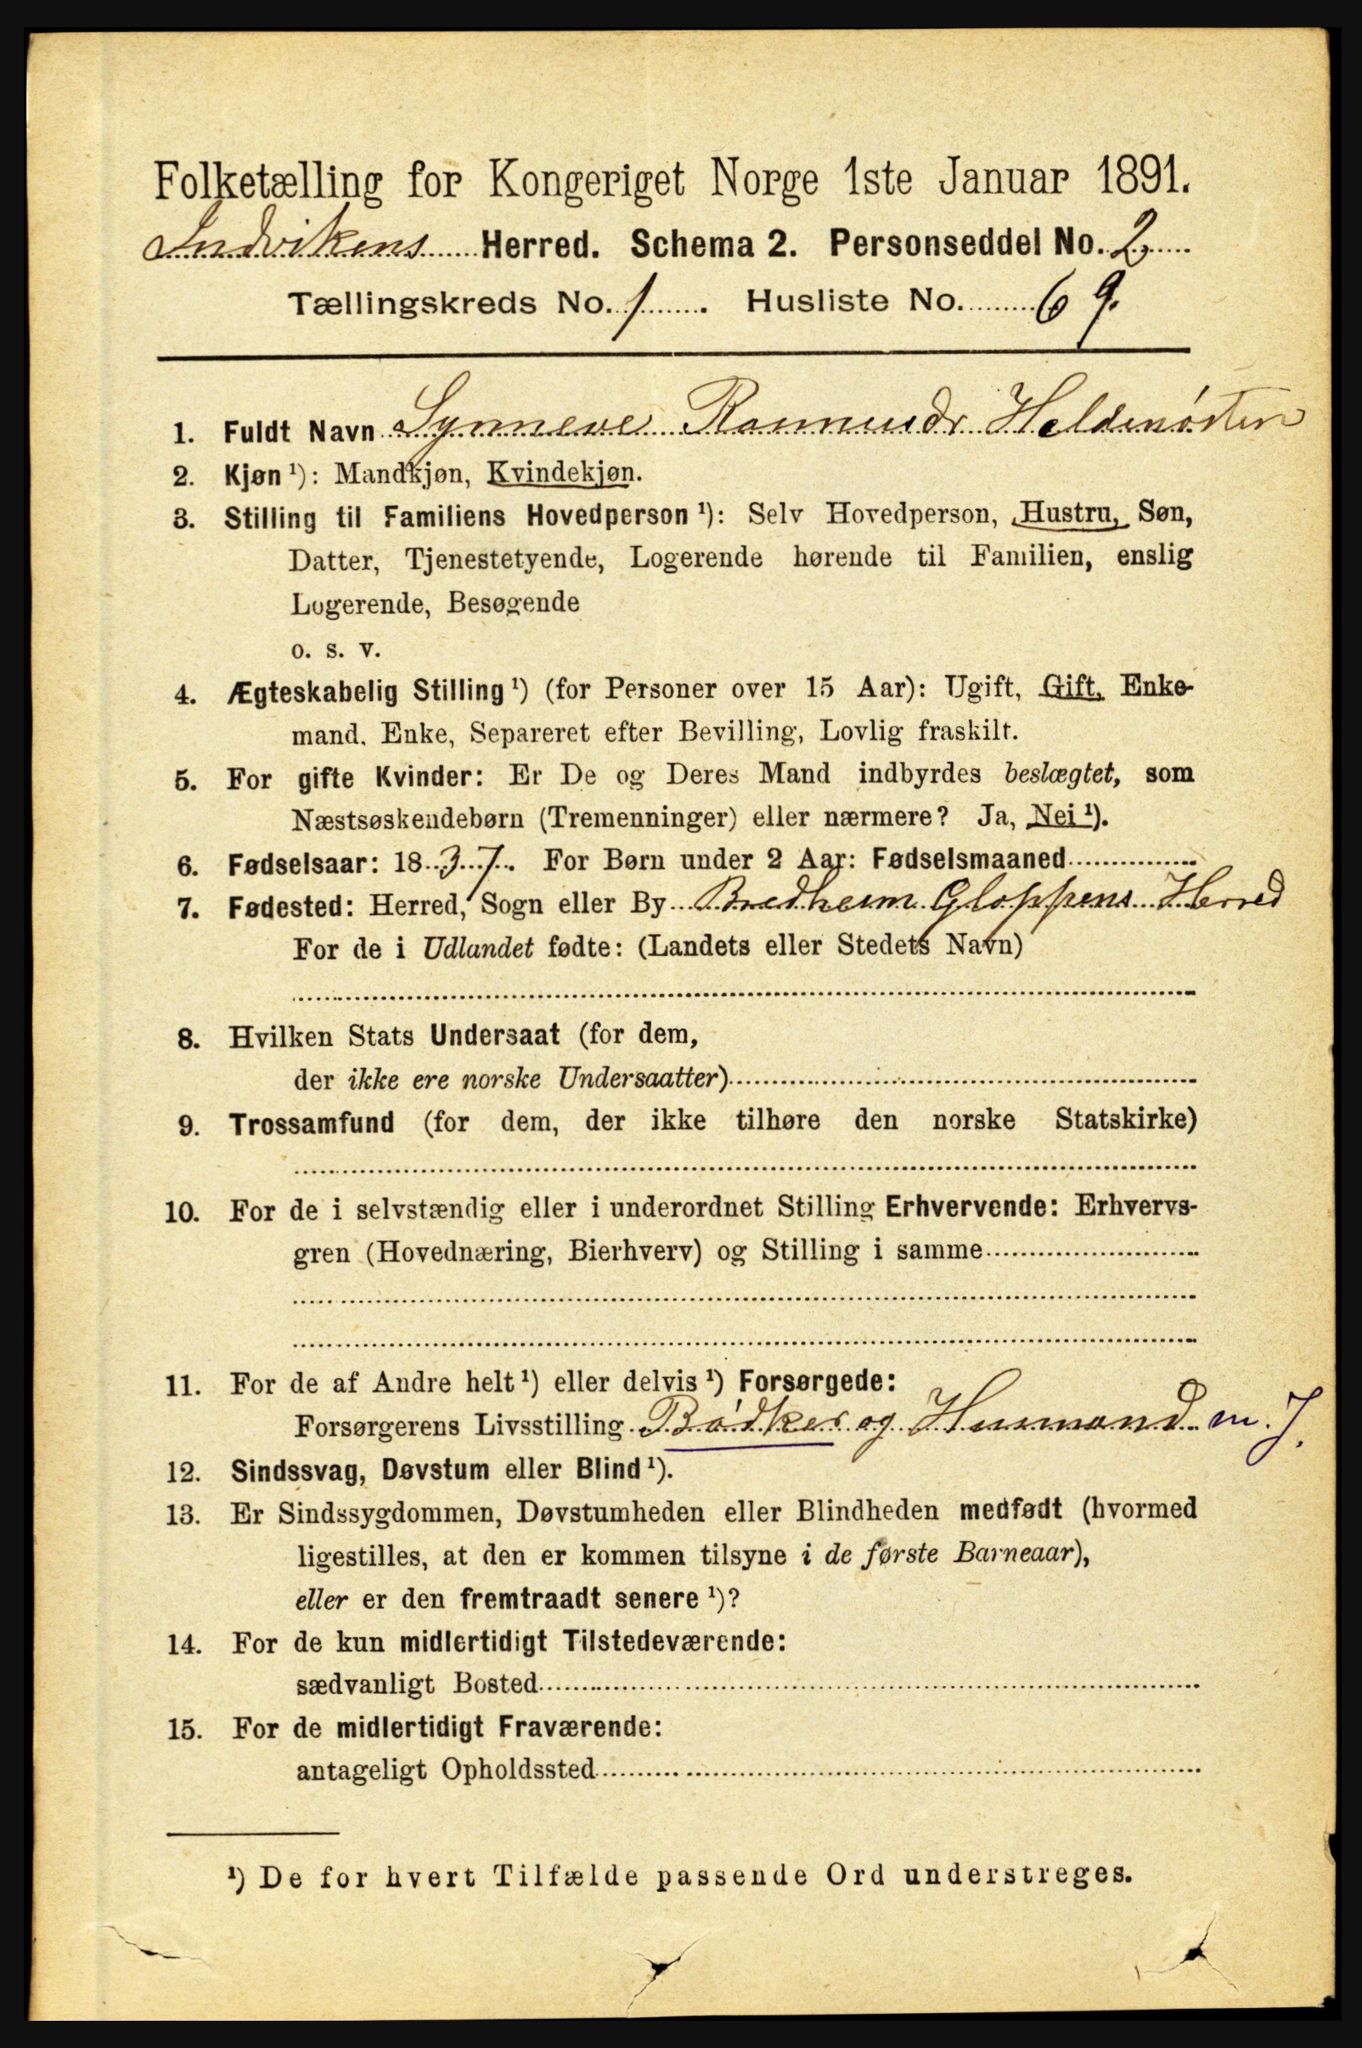 Folketælling for Kongeriget Norge 1ste Januar 1891.
Indvikens Herred. Schema 2. Personseddel No. 2
Tællingskreds No. 1. Husliste No. 69.
1. Fuldt Navn Synneve Rasmusdr Heldenösten
2. Kjøn ¹): Mandkjøn, Kvindekjøn.
3. Stilling til Familiens Hovedperson ¹): Selv Hovedperson, Hustru, Søn,
Datter, Tjenestetyende, Logerende hørende til Familien, enslig
Logerende, Besøgende
o. s. v.
4. Ægteskabelig Stilling ¹) (for Personer over 15 Aar): Ugift, Gift, Enke-
mand, Enke, Separeret efter Bevilling, Lovlig fraskilt.
5. For gifte Kvinder: Er De og Deres Mand indbyrdes beslægtet, som
Næstsøskendebørn (Tremenninger) eller nærmere? Ja, Nei ¹).
6. Fødselsaar: 1837. For Børn under 2 Aar: Fødselsmaaned
7. Fødested: Herred, Sogn eller By Bredheim Gloppens Herred
For de i Udlandet fødte: (Landets eller Stedets Navn)
8. Hvilken Stats Undersaat (for dem,
der ikke ere norske Undersaatter)
9. Trossamfund (for dem, der ikke tilhøre den norske Statskirke)
10. For de i selvstændig eller i underordnet Stilling Erhvervende: Erhvervs-
gren (Hovednæring, Bierhverv) og Stilling i samme
11. For de af Andre helt ¹) eller delvis ¹) Forsørgede:
Forsørgerens Livsstilling Bödker og Husmand m. J.
12. Sindssvag, Døvstum eller Blind ¹).
13. Er Sindssygdommen, Døvstumheden eller Blindheden medfødt (hvormed
ligestilles, at den er kommen tilsyne i de første Barneaar),
eller er den fremtraadt senere ¹)?
14. For de kun midlertidigt Tilstedeværende:
sædvanligt Bosted
15. For de midlertidigt Fraværende:
antageligt Opholdssted
¹) De for hvert Tilfælde passende Ord understreges.